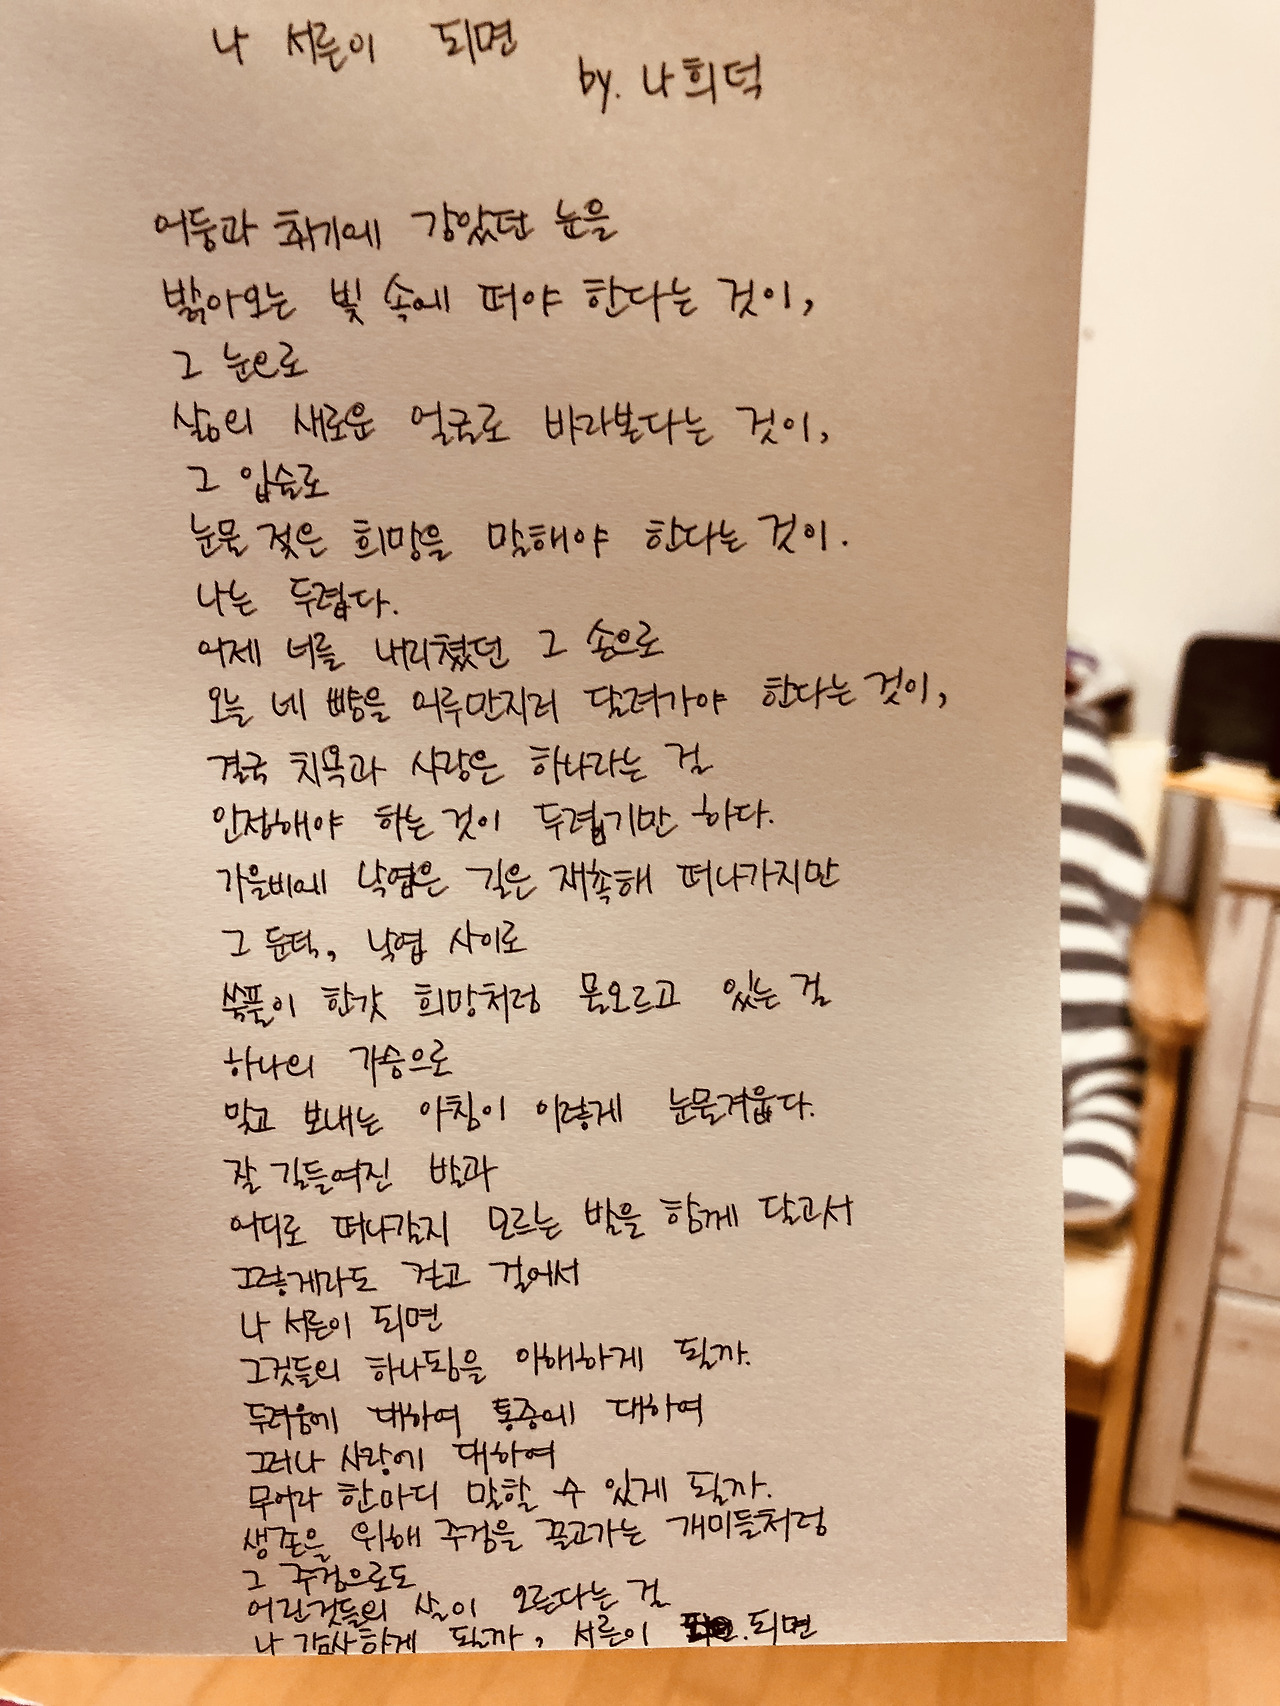 나 서른이 되면
by. 나희덕
어둠과 취기에 감았던 눈을
밝아오는 빛 속에 떠야 한다는 것이,
그 눈으로
삶의 새로운 얼굴로 바라본다는 것이,
그 입술로
눈물 젖은 희망을 말해야 한다는 것이.
나는 두렵다.
어제 너를 내리쳤던 그 손으로
오늘 네 뺨을 어루만지러 달려가야 한다는 것이,
결국 치욕과 사랑은 하나라는 걸
인정해야 하는 것이 두렵기만 하다.
가을비에 낙엽은 길은 재촉해 떠나가지만
그 둔덕, 낙엽 사이로
쑥풀이 한갓 희망처럼 물오르고 있는 걸
하나의 가슴으로
맞고 보내는 아침이 이렇게 눈물겨웁다.
잘 길들여진 발과
어디로 떠나갈지 모르는 발을 함께 달고서
그렇게라도 걷고 걸어서
나 서른이 되면
그것들의 하나됨을 이해하게 될까.
두려움에 대하여 통증에 대하여
그러나 사랑에 대하여
무어라 한마디 말할 수 있게 될까.
생존을 위해 주검을 끌고가는 개미들처럼
그 주검으로도
어린것들의 살이 오른다는 걸
나 감사하게 될까, 서른이 되면